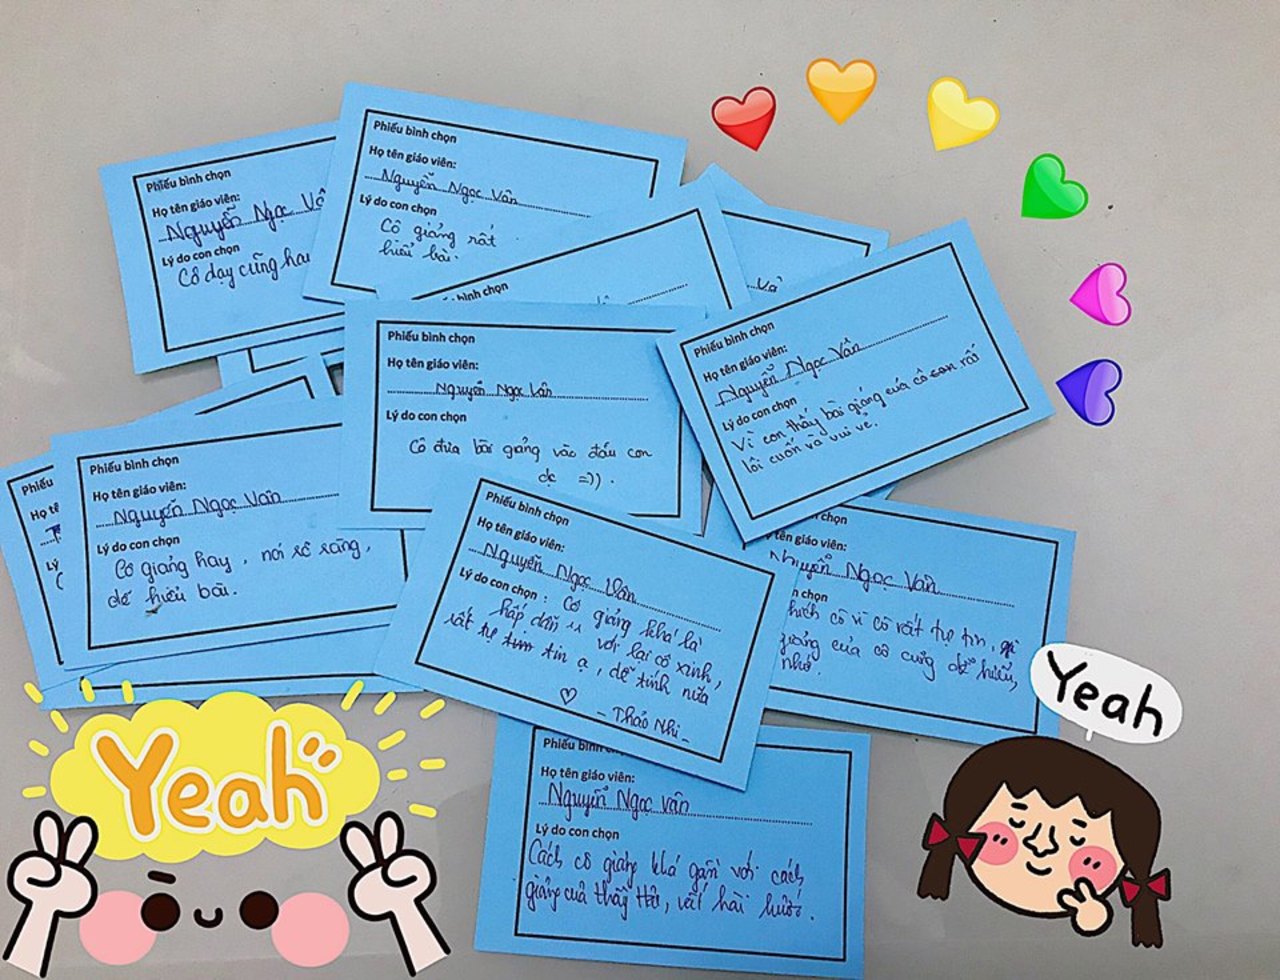 Phiếu bình chọn
Họ tên giáo viên:
Nguyễn Ngọc Vâ
Lý do con chọn
Cô dạy cũng hay
Phiếu bình chọn
Họ tên giáo viên:
Nguyễn Ngọc Vân
Lý do con chọn
Cô giảng rất
hiểu bài.
bình chọn
Vâ
Phiếu bình chọn
Họ tên giáo viên:
Nguyễn Ngọc Vân
Lý do con chọn
Vì con thấy bài giảng của cô con rất
lôi cuốn và vui vẻ.
Phiếu bình chọn
Họ tên giáo viên:
Nguyễn Ngọc Vân
Lý do con chọn
Cô đưa bài giảng vào đầu con
đc =)) .
Phiếu
Họ tê
Lý
Phiếu bình chọn
Họ tên giáo viên:
Nguyễn Ngọc Vân
Lý do con chọn
Cô giảng hay, nói rõ ràng,
dễ hiểu bài.
Phiếu bình chọn
Họ tên giáo viên:
Nguyễn Ngọc Vân
Lý do con chọn : Cô giảng khá là
hấp dẫn với lại cô xinh,
rất tự tin ạ, dễ tính nữa
♡
- Thảo Nhi -
chọn
tên giáo viên:
Nguyễn Ngọc Vân
n chọn
thích cô vì cô rất tự tin,
giảng của cô cũng dễ hiểu,
nhớ.
Phiếu bình
Họ tên giáo viên:
Nguyễn Ngọc Vân
Lý do con chọn
Cách cô giảng khá gần với cách
giảng của thầy , rất hài hước.
Yeah
Yeah